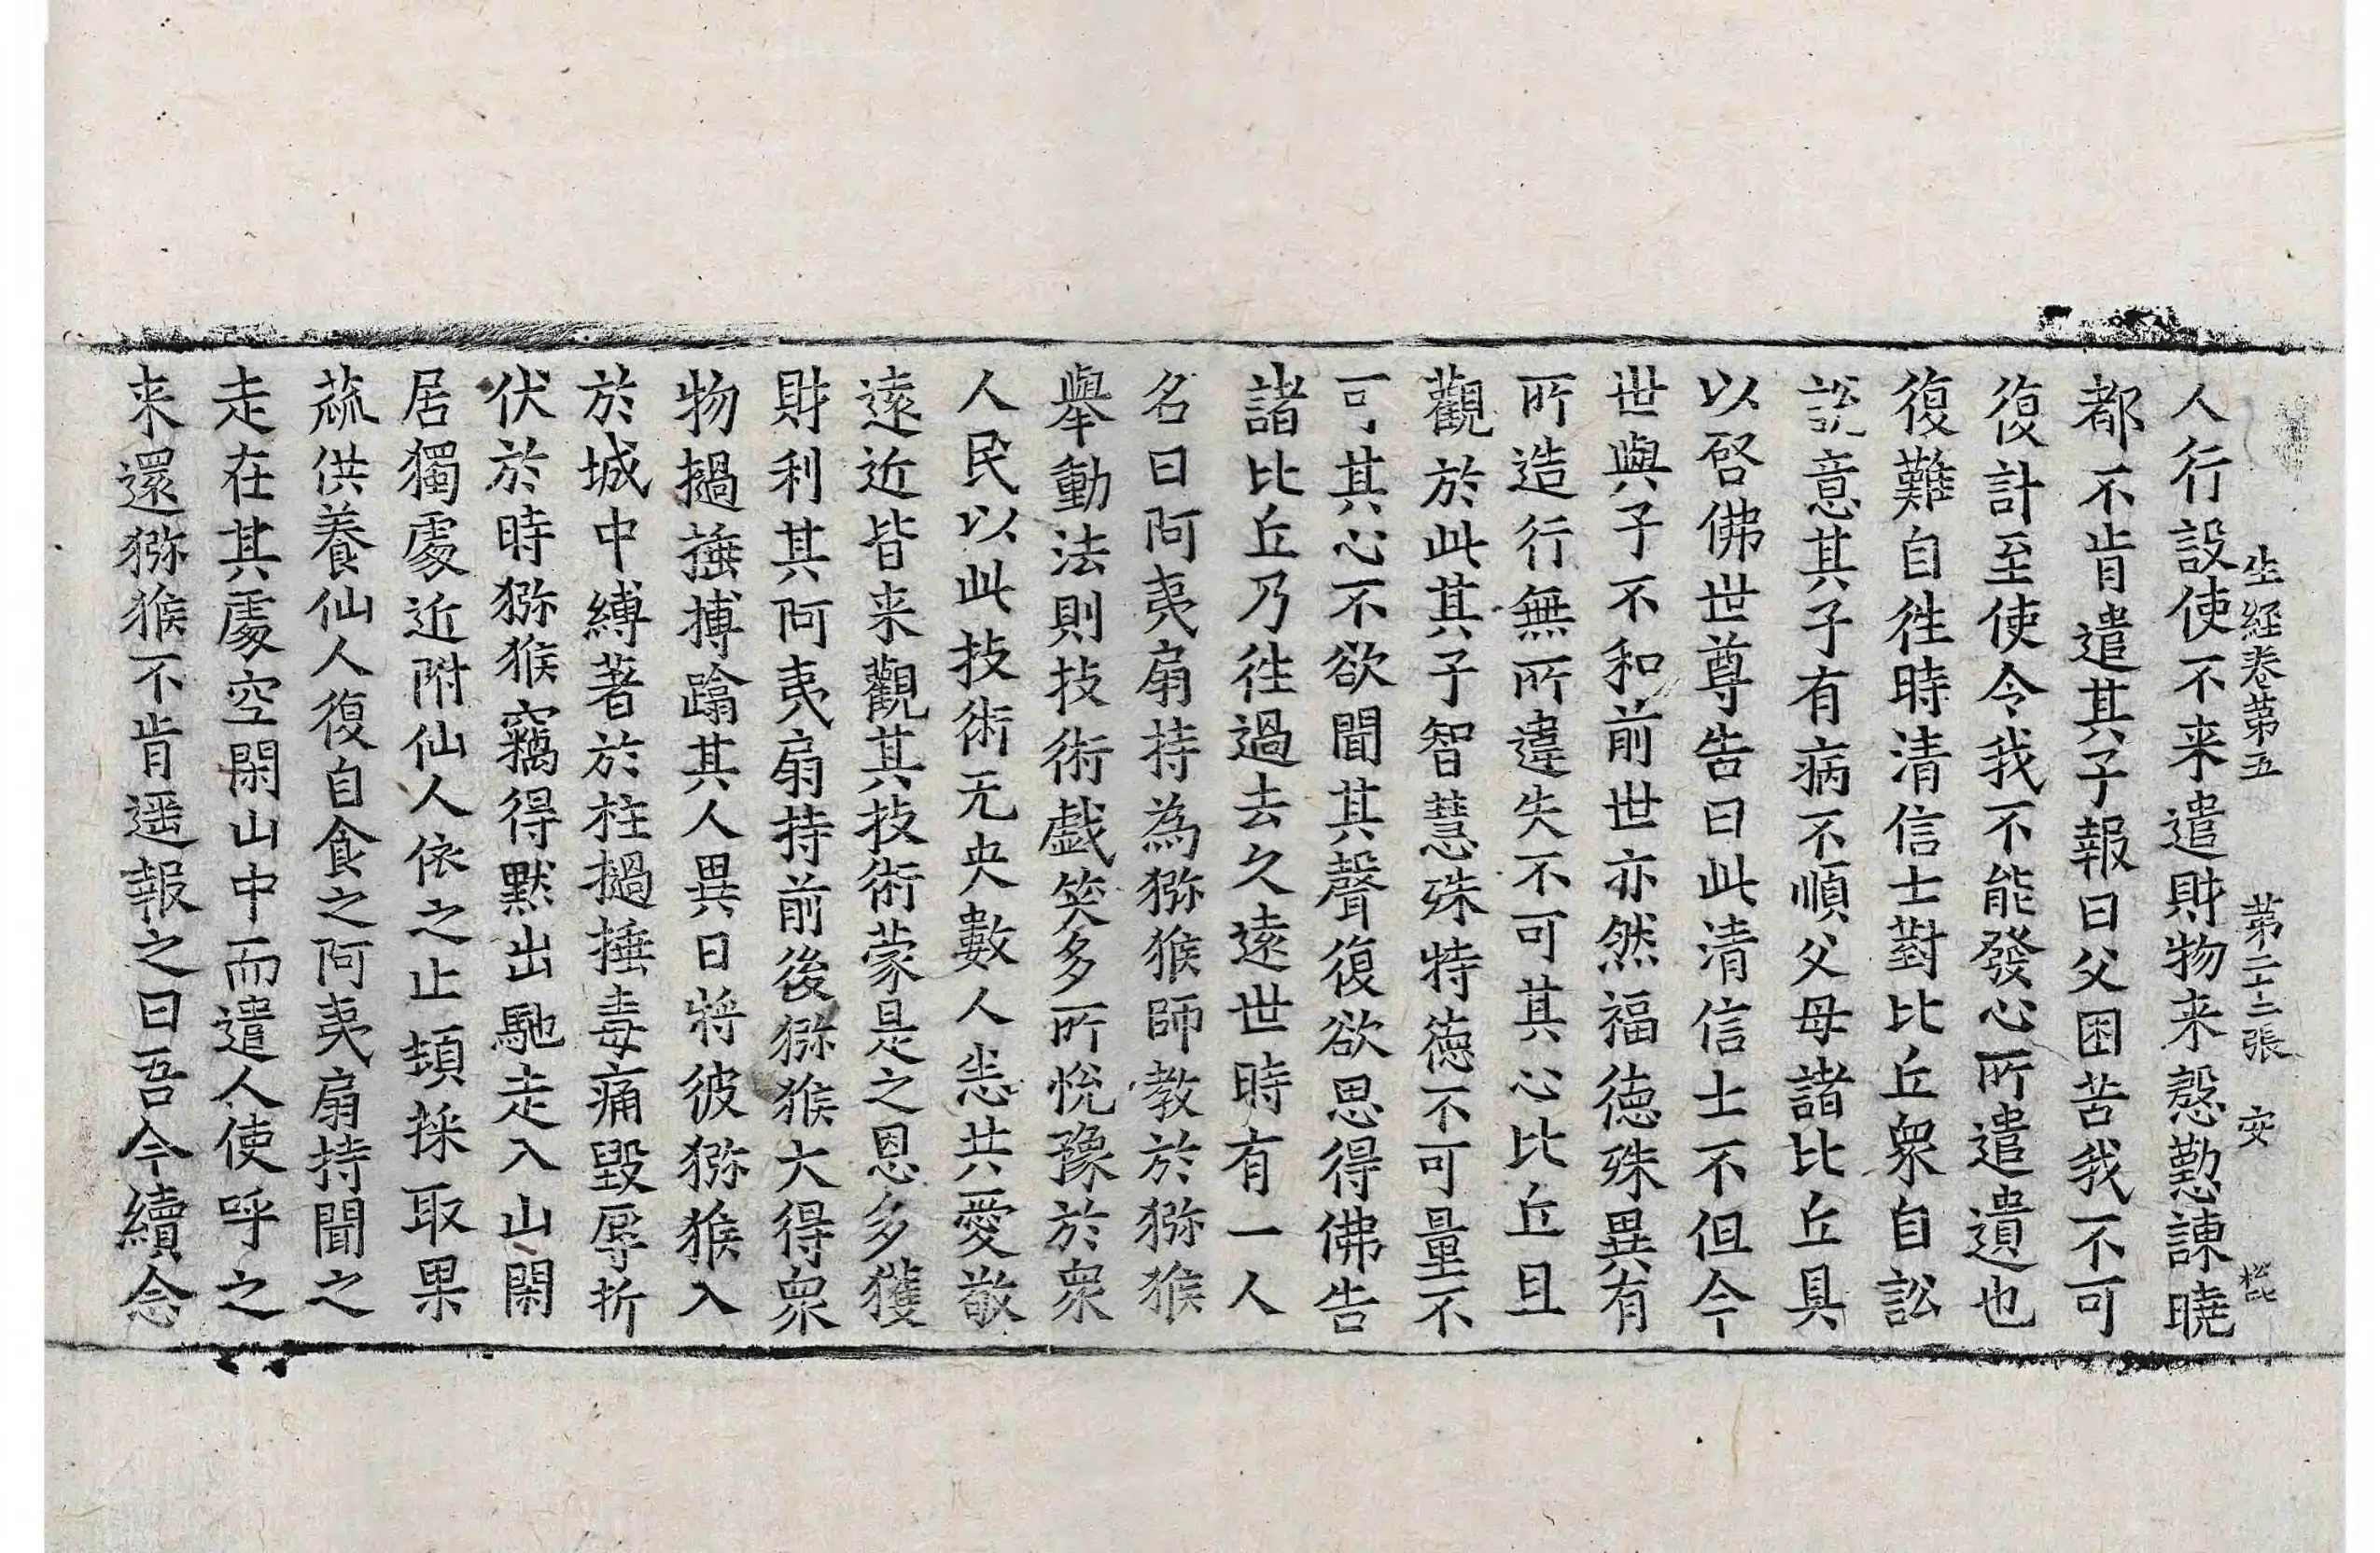 生經卷第五 第二十二張 安
人行設使不来遣財物来慇懃諫曉
都不肯遣其子報曰父困苦我不可
復計至使令我不能發心所遣遺也
復難自徃時清信士對比丘衆自訟
說意其子有病不順父母諸比丘具
以啓佛世尊告曰此清信士不但今
世與子不和前世亦然福德殊異有
所造行無所違失不可其心比丘且
觀於此其子智慧殊特德不可量不
可其心不欲聞其聲復欲思得佛告
諸比丘乃徃過去久遠世時有一人
名曰阿夷扇持為猕猴師教於猕猴
舉動法則技術戯笑多所悅豫於衆
人民以此技術无央數人恙共愛敬
遠近皆来觀其技術蒙是之恩多獲
財利其阿夷扇持前後猕猴大得衆
物撾捶搏蹹其人異日將彼猕猴入
於城中縛著於柱撾捶毒痛毀辱折
伏於時猕猴竊得黙出馳走入山閑
居獨處近附仙人依之止頓採取果
蓏供養仙人復自食之阿夷扇持聞之
走在其處空閑山中而遣人使呼之
来還猕猴不肯遥報之曰吾今續念